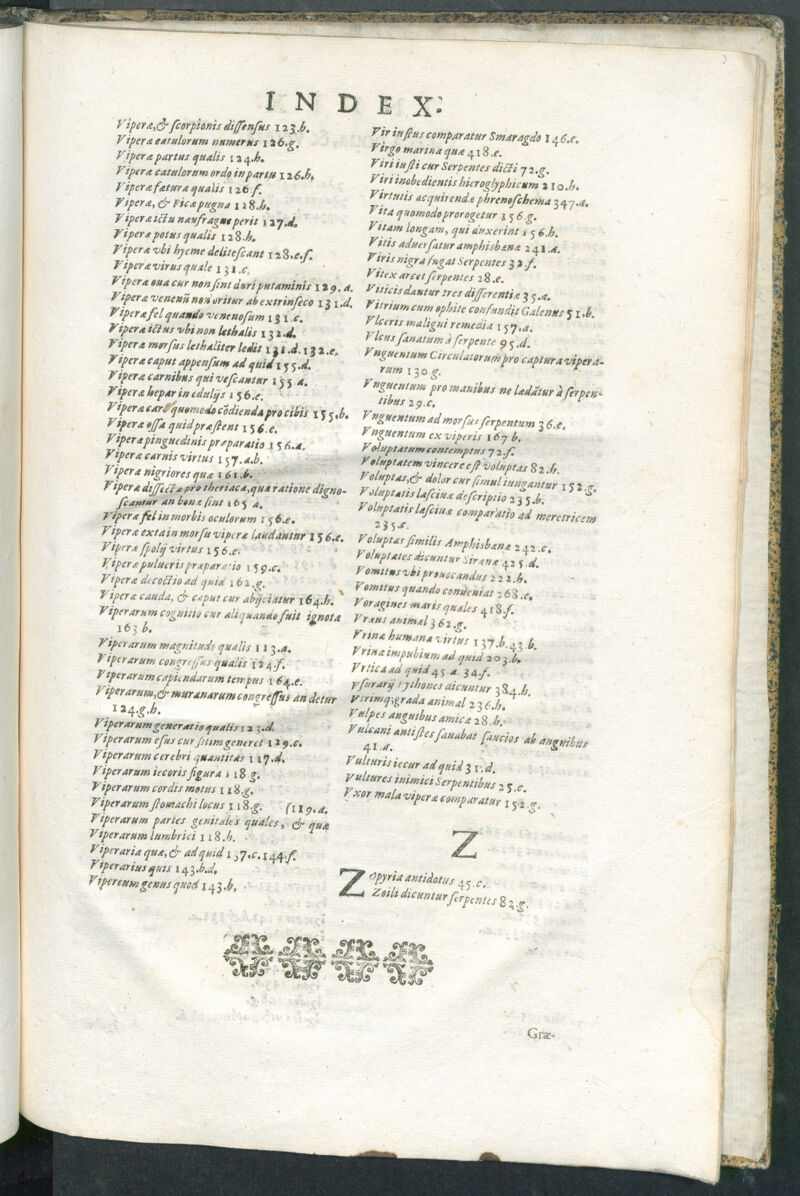 INDEX.
Viperæ, & scorpionis dissensus 123.b.
Viperæ catulorum numerus 126.g.
Viperæ partus qualis 124.h.
Viperæ catulorum ordo in partu 126.h.
Viperæ fætura qualis 126 f.
Viperæ, & Picæ pugna 128.h.
Viperæ ictu naufragus perit 127.d.
Viperæ potus qualis 128.h.
Viperæ vbi hyeme delitescant 128.e.f.
Viperæ virus quale 131.c.
Viperæ oua cur non sint duri putaminis 129.a.
Viperæ venenũ non oritur ab extrinseco 131.d.
Viperæ fel quando venenosum 131.c.
Viperæ ictus vbi non lethalis 132.d.
Viperæ morsus lethaliter ledit 131.d.132.e.
Viperæ caput appensum ad quid 155.d.
Viperæ carnibus qui vescantur 155 a.
Viperæ hepar in edulijs 156.e.
Viperæ caro quomodo cõdienda pro cibis 155.b.
Viperæ ossa quid præstent 156.e.
Viperæ pinguedinis præparatio 156.a.
Viperæ carnis virtus 157.a.b.
Viperæ nigriores quæ 161.b.
Viperæ dissectæ pro theriaca, qua ratione digno-
scantur an bonæ sint 165 a.
Viperæ fel in morbis oculorum 156.e.
Viperæ exta in morsu viperæ laudantur 156.e.
Viperæ spolij virtus 156.e.
Viperæ pulueris præparatio 159.c.
Viperæ decoctio ad quid 162.g.
Viperæ cauda, & caput cur abijciatur 164.h.
Viperarum cognitio cur aliquando fuit ignota
163 b.
Viperarum magnitudo qualis 113.a.
Viperarum congressus qualis 124.f.
Viperarum capiendarum tempus 164.e.
Viperarum, & murænarum congressus an detur
124.g.h.
Viperarum generatio qualis 123.d.
Viperarum esus cur sitim generet 129.c.
Viperarum cerebri quantitas 117.d.
Viperarum iecoris figura 118 g.
Viperarum cordis motus 118.g.
Viperarum stomachi locus 118.g. (119.a.
Viperarum partes genitales quales, & quæ
Viperarum lumbrici 118.h.
Viperaria quæ, & ad quid 137.c.144.f.
Viperarius quis 143.b.d.
Vipereum genus quod 143.b.
Vir iustus comparatur Smaragdo 146.e.
Virgo marina quæ 418.e.
Viri iusti cur Serpentes dicti 72.g.
Viri inobedientis hieroglyphicum 210.h.
Virtutis acquirendæ phrenoschema 347.a.
Vita quomodo prorogetur 156.g.
Vitam longam, qui auxerint 156.h.
Vitis aduersatur amphisbænæ 241.a.
Vitis nigra fugat Serpentes 32.f.
Vitex arcet serpentes 28.e.
Viticis dantur tres differentiæ 35.a.
Vitrium cum ophite confundit Galenus 51.b.
Vlceris maligni remedia 157.a.
Vlcus sanatum à serpente 95.d.
Vnguentum Circulatorum pro captura vipera-
rum 130 g.
Vnguentum pro manibus ne lædãtur à serpen-
tibus 29.c.
Vnguentum ad morsus serpentum 36.e.
Vnguentum ex viperis 167 b.
Voluptatum contemptus 72.f.
Voluptatem vincere est voluptas 82.h.
Voluptas, & dolor cur simul iungantur 152.g.
Voluptatis lasciuæ descriptio 235.b.
Voluptatis lasciuæ comparatio ad meretricem
235.c.
Voluptas similis Amphisbænæ 242.c.
Voluptates dicuntur Sirenæ 425.d.
Vomitus vbi prouocandus 222.h.
Vomitus quando conueniat 268.e.
Voragines maris quales 418.f.
Vræus animal 362.g.
Vrinæ humanæ virtus 137.b.43.b.
Vrina impubium ad quid 203.b.
Vrtica ad quid 45 a 34.f.
Vsurarij Pythones dicuntur 384.h.
Vtrimq; grada animal 236.h.
Vulpes anguibus amicæ 28.h.
Vulcani antistes sanabat saucios ab anguibus
41.a.
Vulturis iecur ad quid 31.d.
Vultures inimici Serpentibus 25.c.
Vxor mala viperæ comparatur 152.g.
Z
Zopyria antidotus 45.c.
Zoili dicuntur serpentes 82.g.
Græ-